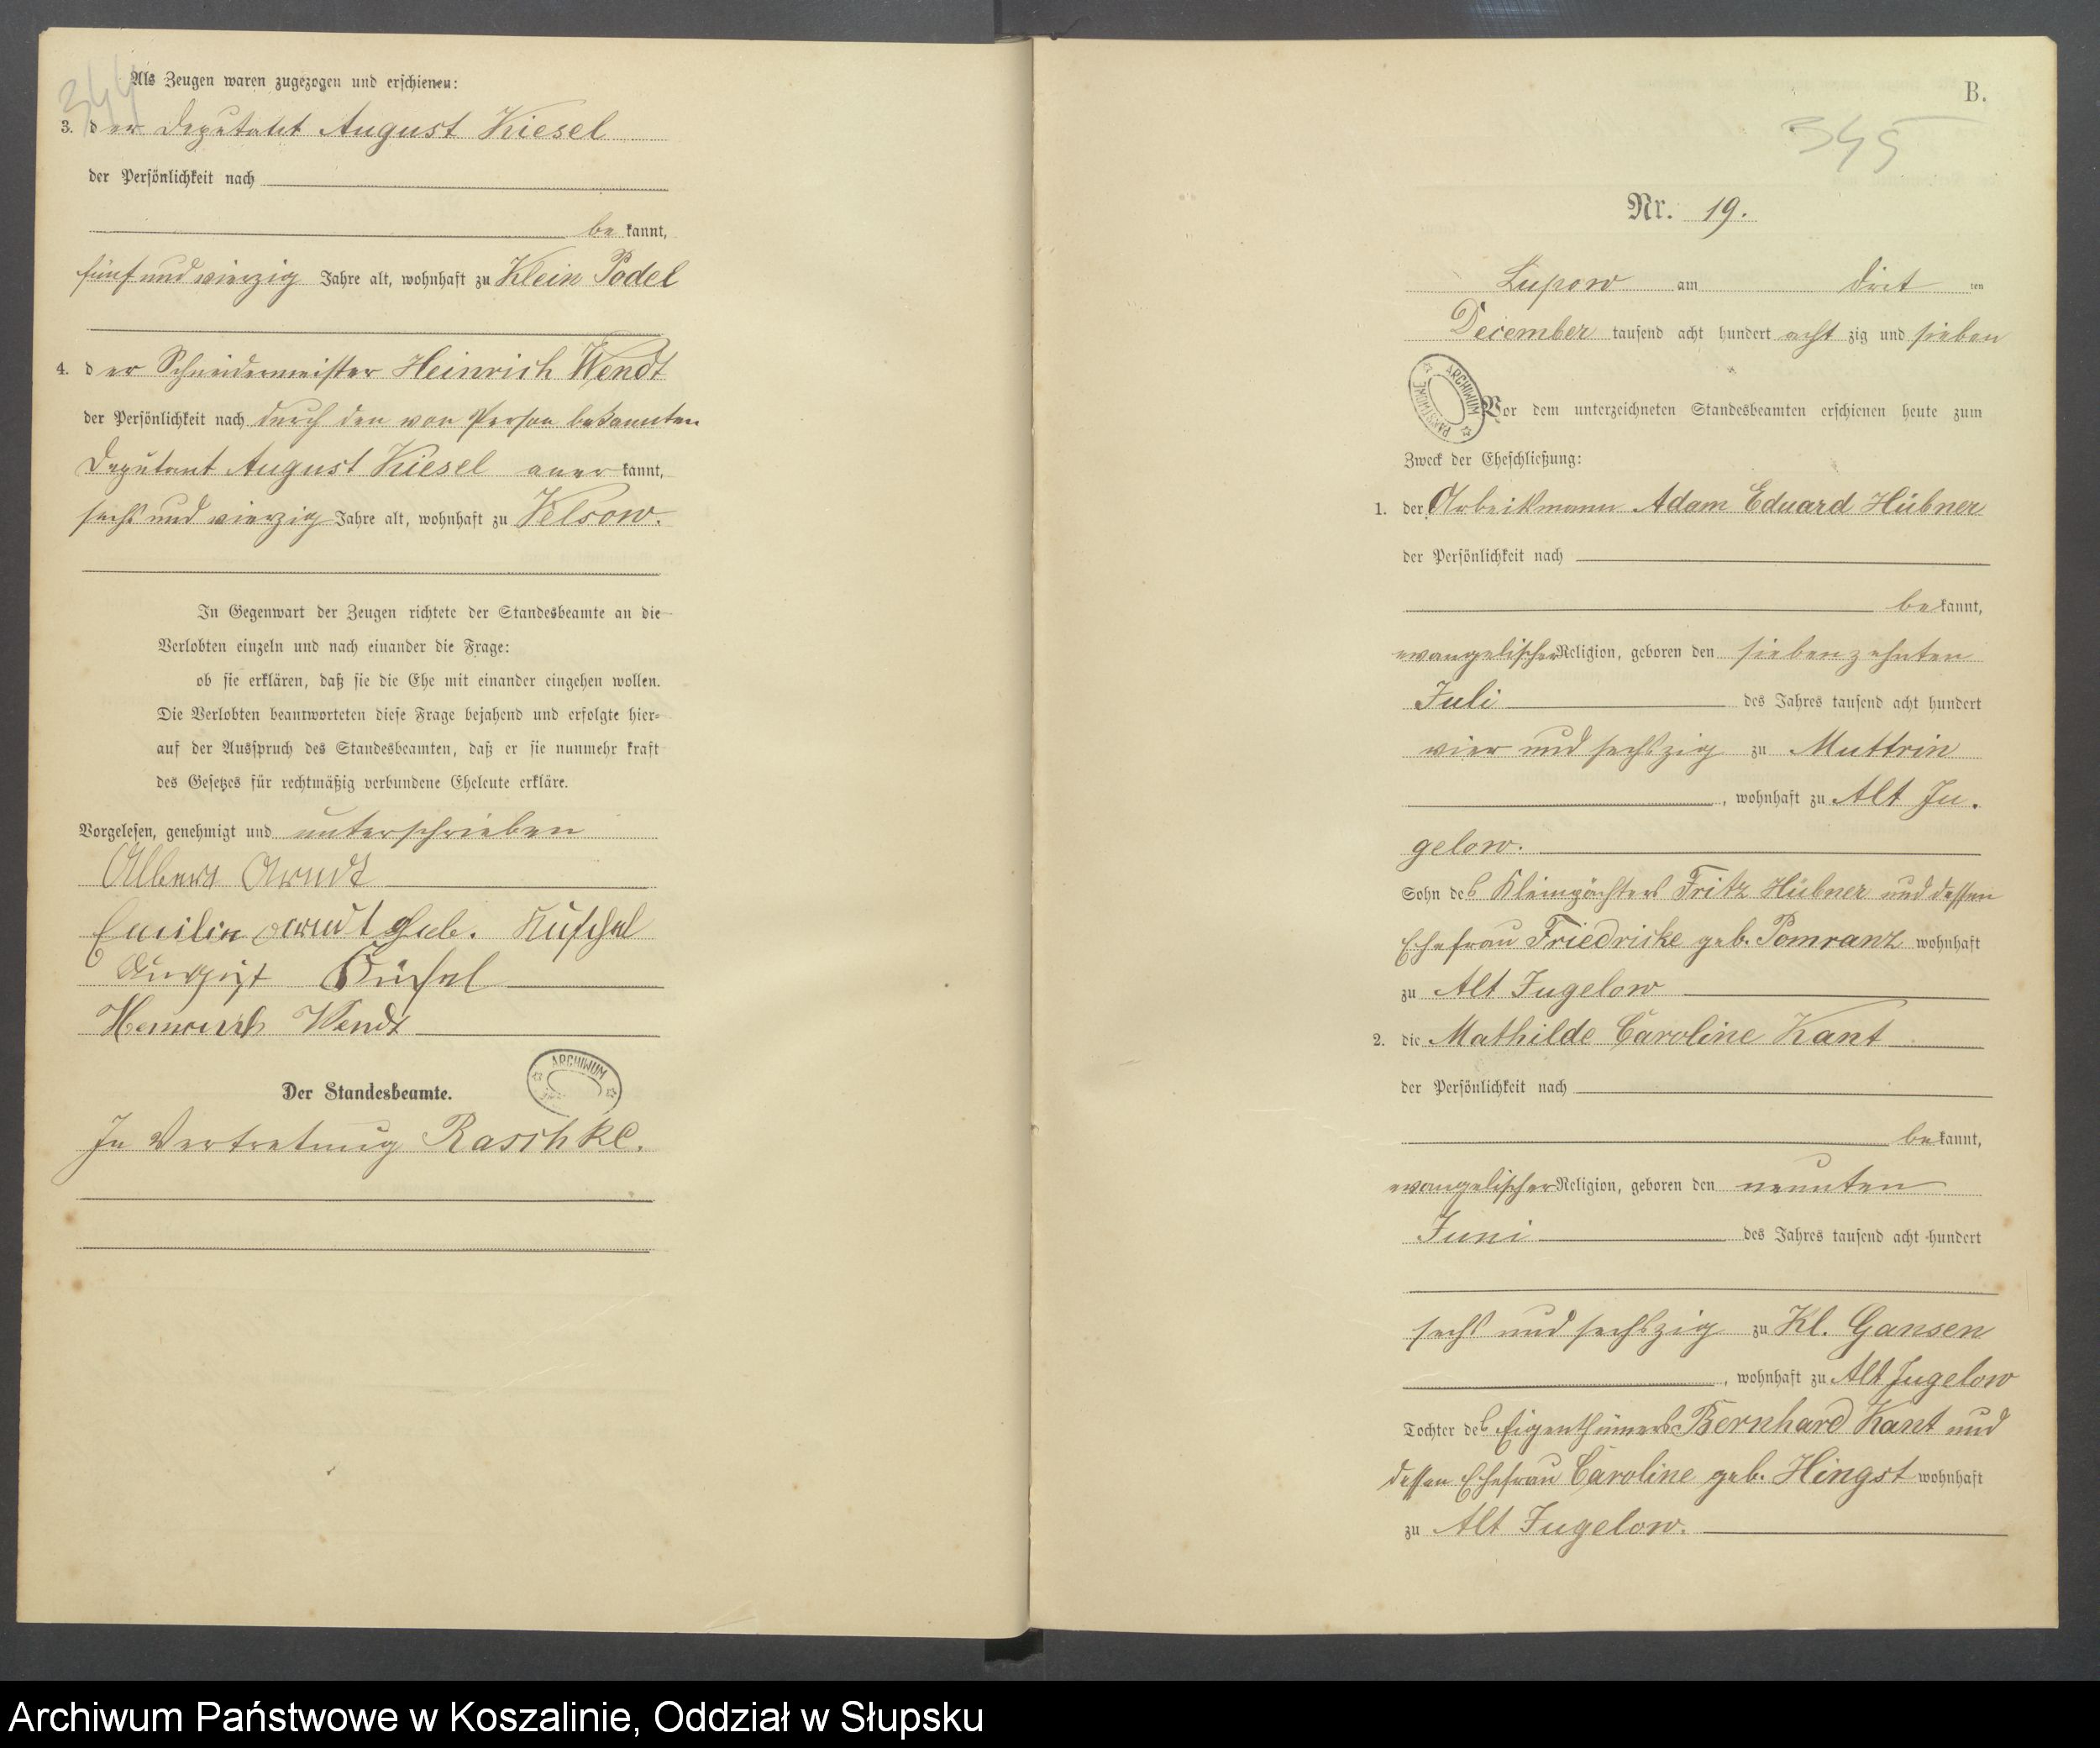 344
Als Zeugen waren zugezogen und erschienen:
3. der Deputant August Kiesel
der Persönlichkeit nach
bekannt,
fünf und vierzig Jahre alt, wohnhaft zu Klein Podel
4. der Schneidermeister Heinrich Wendt
der Persönlichkeit nach durch den von Person bekannten
Deputant August Kiesel anerkannt,
sechs und vierzig Jahre alt, wohnhaft zu Velsow.
In Gegenwart der Zeugen richtete der Standesbeamte an die
Verlobten einzeln und nach einander die Frage:
ob sie erklären, daß sie die Ehe mit einander eingehen wollen.
Die Verlobten beantworteten diese Frage bejahend und erfolgte hier-
auf der Ausspruch des Standesbeamten, daß er sie nunmehr kraft
des Gesetzes für rechtmäßig verbundene Eheleute erkläre.
Vorgelesen, genehmigt und unterschrieben
Albert Arndt
Emilie Arndt geb.
August
Heinrich Wendt
ARCHIWUM
Der Standesbeamte.
In Vertretung Raschke.
B.
345
Nr. 19.
Lupow am dritten
December tausend acht hundert achtzig und sieben
ARCHIWUM PAŃSTWOWE
Vor dem unterzeichneten Standesbeamten erschienen heute zum
Zweck der Eheschließung:
1. der Arbeitsmann Adam Eduard Hübner
der Persönlichkeit nach
bekannt,
evangelischer Religion, geboren den siebenzehnten
Juli des Jahres tausend acht hundert
vier und sechszig zu Muttrin
, wohnhaft zu Alt Ju.
gelow.
Sohn des Kleinpächters Fritz Hübner und dessen
Ehefrau Friedricke geb. Pomranz wohnhaft
zu Alt Jugelow
2. die Mathilde Caroline Kant
der Persönlichkeit nach
bekannt,
evangelischer Religion, geboren den neunten
Juni des Jahres tausend acht hundert
sechs und sechszig zu Kl. Gansen
, wohnhaft zu Alt Jugelow
Tochter des Eigenthümers Bernhard Kant und
dessen Ehefrau Caroline geb. Hingst wohnhaft
zu Alt Jugelow.
Archiwum Państwowe w Koszalinie, Oddział w Słupsku